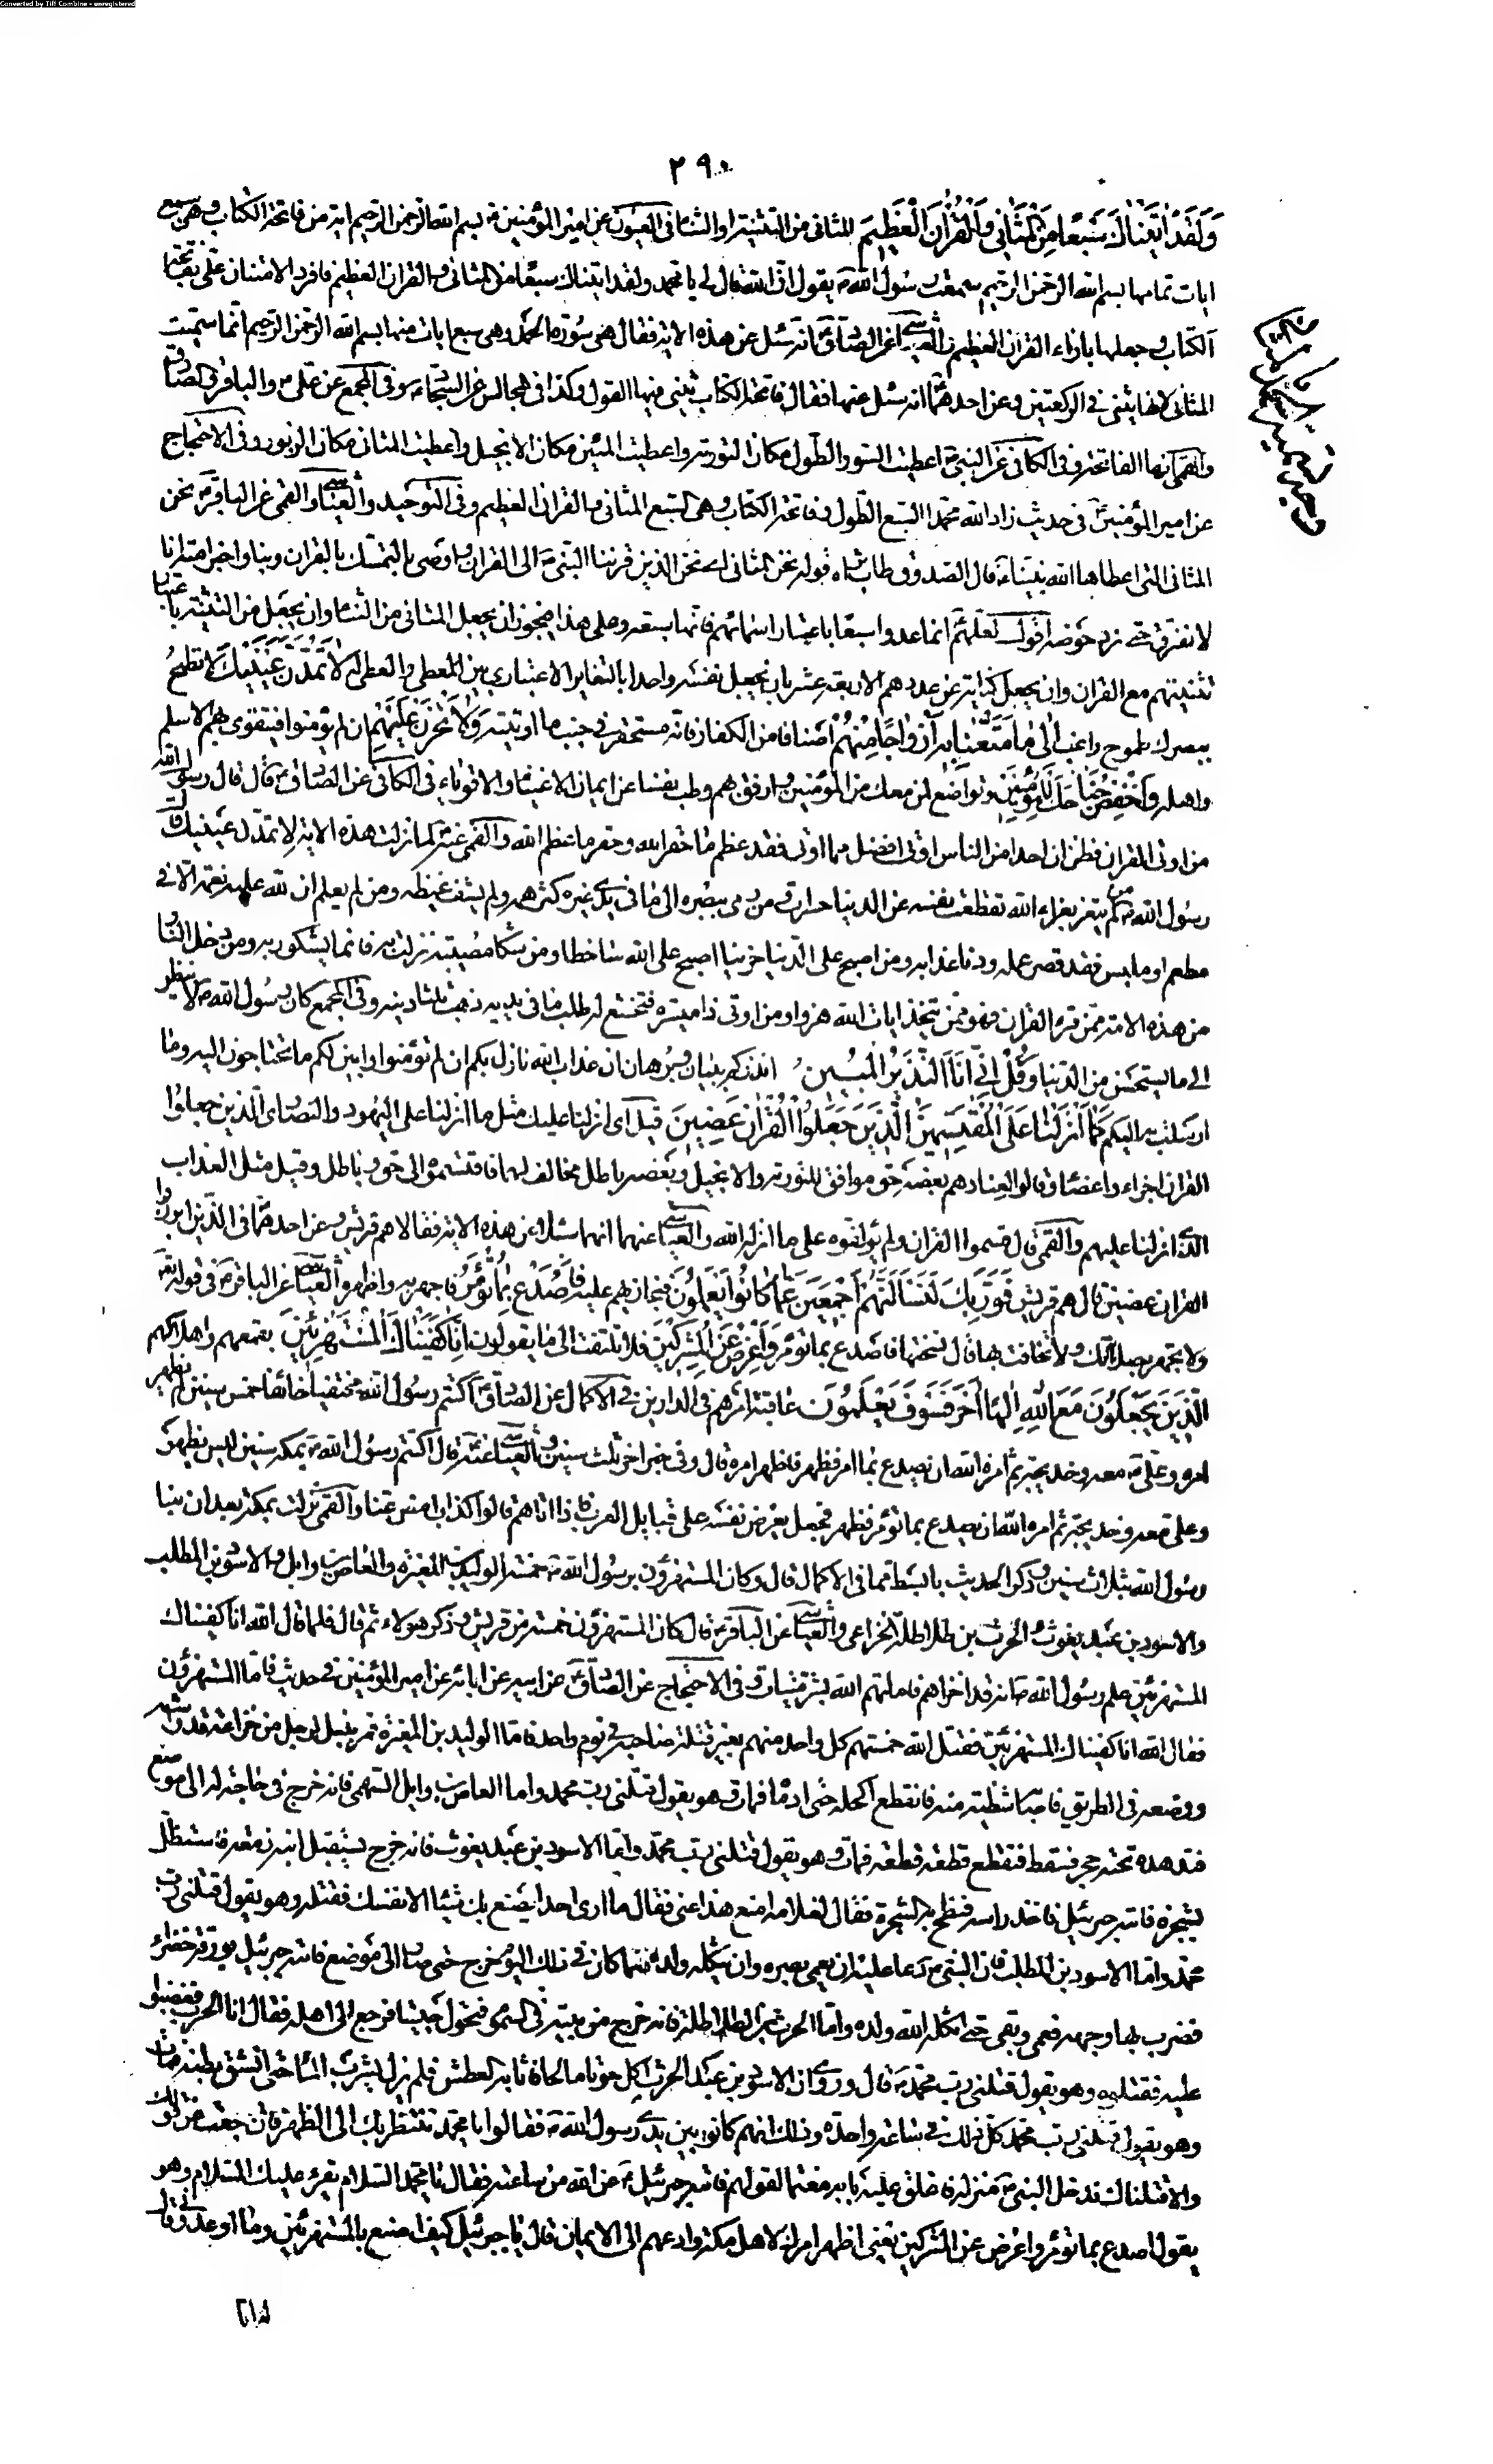 Converted by Tiff Combine - unregistered
٢٩٠
وَلَقَدْ اٰتَيْنَاكَ سَبْعًا مِنَ الْمَثَانِي وَالْقُرْآنَ الْعَظِيمَ المثانى من التثنية او الثنا فى العيون عن امير المؤمنين بسم الله الرحمن الرحيم اية من فاتحة الكتاب وهى سبع
ايات تمامها بسم الله الرحمن الرحيم سمعت رسول الله يقول ان الله قال لى يا محمد ولقد اتيناك سبعا من المثانى والقران العظيم فافرد الامتنان على بفاتحة
الكتاب وجعلها بازاء القران العظيم والعياشى عن الصادق انه سئل عن هذه الاية فقال هى سورة الحمد وهى سبع ايات منها بسم الله الرحمن الرحيم انما سميت
المثانى لانها يثنى فى الركعتين وعن احدهما انه سئل عنها فقال فاتحة الكتاب يثنى فيها القول وكذا فى المجالس عن السجاد وفى المجمع عن على والباقر والصادق
والقمى انها الفاتحة وفى الكافى عن النبى اعطيت السور الطول مكان التورية واعطيت المئين مكان الانجيل واعطيت المثانى مكان الزبور وفى الاحتجاج
عن امير المؤمنين فى حديث زاد الله محمدا السبع الطول وفاتحة الكتاب وهى السبع المثانى والقران العظيم وفى التوحيد والعياشى والقمى عن الباقر نحن
المثانى التى اعطاها الله نبينا قال الصدوق طاب ثراه قوله نحن المثانى اى نحن الذين قرننا النبى الى القران واوصى بالتمسك بالقران وبنا واخبر امته انا
لا نفترق حتى نرد حوضه اقول لعلهم انما عدوا سبعا باعتبار اسمائهم فانها سبعة وعلى هذا فيجوز ان يجعل المثانى من الثنا وان يجعل من التثنية باعتبار
تثنيتهم مع القران وان يجعل كناية عن عددهم الاربعة عشر بان يجعل نفسه واحدا بالتغاير الاعتبارى بين المعطى والمعطى له لَا تَمُدَّنَّ عَيْنَيْكَ لا تطمح
ببصرك طموح راغب اِلٰى مَا مَتَّعْنَا بِهِ اَزْوَاجًا مِنْهُمْ اصنافا من الكفار فانه مستحقر فى جنب ما اوتيته وَلَا تَحْزَنْ عَلَيْهِمْ ان لم يؤمنوا فيتقوى بهم الاسلم
واهله وَاخْفِضْ جَنَاحَكَ لِلْمُؤْمِنِينَ وتواضع لمن معك من المؤمنين وارفق بهم وطب نفسا عن ايمان الاغنيا والاقوياء فى الكافى عن الصادق قال قال رسول الله
من اوتى القران فظن ان احدا من الناس اوتى افضل مما اوتى فقد عظم ما حقر الله وحقر ما عظم الله والقمى عنه لما نزلت هذه الاية لا تمدن عينيك قال
رسول الله من لم يتعز بعزاء الله تقطعت نفسه عن الدنيا حسرات ومن رمى ببصره الى ما فى يدى غيره كثر همه ولم يشف غيظه ومن لم يعلم ان لله عليه نعمة الا فى
مطعم او ملبس فقد قصر عمله ودنا عذابه ومن اصبح على الدنيا حزينا اصبح على الله ساخطا ومن شكا مصيبة نزلت به فانما يشكو ربه ومن دخل النار
من هذه الامة ممن قرء القران فهو ممن يتخذ ايات الله هزوا ومن اوتى ذا ميسرة فتخشع له طلب ما فى يديه ذهب ثلثا دينه وفى المجمع كان رسول الله لا ينظر
الى ما يستحسن من الدنيا وَقُلْ اِنِّي اَنَا النَّذِيرُ الْمُبِينُ انذركم ببيان وبرهان ان عذاب الله نازل بكم ان لم تؤمنوا وابين لكم ما تحتاجون اليه وما
ارسلت به اليكم كَمَا اَنْزَلْنَا عَلَى الْمُقْتَسِمِينَ الَّذِينَ جَعَلُوا الْقُرْاٰنَ عِضِينَ قيل اى انزلنا عليك مثل ما انزلنا على اليهود والنصارى الذين جعلوا
القران اجزاء واعضاء وقالوا لعنادهم بعضه حق موافق للتورية والانجيل وبعضه باطل مخالف لهما فاقتسموه الى حق وباطل وقيل مثل العذاب
الذى انزلنا عليهم والقمى قال قسموا القران ولم يؤلفوه على ما انزله الله والعياشى عنهما انهما سئلا عن هذه الاية فقالا هم قريش وعن احدهما فى الذين ابرزوا
القران عضين قال هم قريش فَوَرَبِّكَ لَنَسْأَلَنَّهُمْ اَجْمَعِينَ عَمَّا كَانُوا يَعْمَلُونَ فنجازيهم عليه فَاصْدَعْ بِمَا تُؤْمَرُ فاجهر به واظهره العياشى عن الباقر فى قوله تعالى
ولا تجهر بصلاتك ولا تخافت بها قال نسختها فاصدع بما تؤمر وَاَعْرِضْ عَنِ الْمُشْرِكِينَ فلا تلتفت الى ما يقولون اِنَّا كَفَيْنَاكَ الْمُسْتَهْزِئِينَ بقمعهم واهلاكهم
الَّذِينَ يَجْعَلُونَ مَعَ اللّٰهِ اِلٰهًا اٰخَرَ فَسَوْفَ يَعْلَمُونَ عاقبة امرهم فى الدارين فى الاكمال عن الصادق اكتتم رسول الله مختفيا خائفا خمس سنين لم يظهر
امره وعلى معه وخديجة ثم امره الله ان يصدع بما امر فظهر فاظهر امره قال وفى خبر اخر ثلث سنين والعياشى عنه قال اكتتم رسول الله بمكة سنين ليس يظهر
وعلى معه وخديجة ثم امره الله ان يصدع بما تؤمر فظهر فجعل يعرض نفسه على قبايل العرب فاذا اتاهم قالوا كذاب امض عنا والقمى نزلت بمكة بعد ان نبئ
رسول الله بثلاث سنين وذكر الحديث بابسط مما فى الاكمال قال وكان المستهزؤن برسول الله خمسة الوليد بن المغيرة والعاص بن وايل والاسود بن المطلب
والاسود بن عبد يغوث والحرث بن طلاطلة الخزاعى والعياشى عن الباقر قال كان المستهزؤن خمسة من قريش وذكر هولاء ثم قال فلما قال الله انا كفيناك
المستهزئين علم رسول الله انه قد اخزاهم فاماتهم الله بشر ميتات وفى الاحتجاج عن الصادق عن ابيه عن ابائه عن امير المؤمنين فى حديث فاما المستهزؤن
فقال الله انا كفيناك المستهزئين فقتل الله خمستهم كل واحد منهم بغير قتلة صاحبه فى يوم واحد فاما الوليد بن المغيرة فمر بنبل لرجل من خزاعة قد راشه
ووضعه فى الطريق فاصابه شظية منه فانقطع اكحله حتى ادماه فمات وهو يقول قتلنى رب محمد واما العاص بن وايل السهمى فانه خرج فى حاجة له الى موضع
فتدهده تحته حجر فسقط فتقطع قطعة قطعة فمات وهو يقول قتلنى رب محمد واما الاسود بن عبد يغوث فانه خرج يستقبل ابنه زمعة فاستظل
بشجرة فاتاه جبرئيل فاخذ راسه فنطح به الشجرة فقال لغلامه امنع هذا عنى فقال ما ارى احدا يصنع بك شيئا الا نفسك فقتله وهو يقول قتلنى رب
محمد واما الاسود بن المطلب فان النبى دعا عليه ان يعمى بصره وان يثكله ولده فلما كان فى ذلك اليوم خرج حتى صار الى موضع فاتاه جبرئيل بورقة خضراء
فضرب بها وجهه فعمى وبقى حتى اثكله الله ولده واما الحرث بن الطلاطلة فانه خرج من بيته فى السموم فتحول حبشيا فرجع الى اهله فقال انا الحرث فغضبوا
عليه فقتلوه وهو يقول قتلنى رب محمد قال وروى ان الاسود بن عبد الحرث اكل حوتا مالحا فاصابه العطش فلم يزل يشرب الماء حتى انشق بطنه فمات
وهو يقول قتلنى رب محمد كل ذلك فى ساعة واحدة وذلك انهم كانوا بين يدى رسول الله فقالوا يا محمد ننتظر بك الى الظهر فان رجعت عن قولك
والا قتلناك فدخل النبى منزله فاغلق عليه بابه مغتما لقولهم فاتاه جبرئيل عن الله من ساعته فقال يا محمد السلام يقرء عليك السلام وهو
يقول اصدع بما تؤمر واعرض عن المشركين يعنى اظهر امرك لاهل مكة وادعهم الى الايمان قال يا جبرئيل كيف اصنع بالمستهزئين وما اوعدونى قال